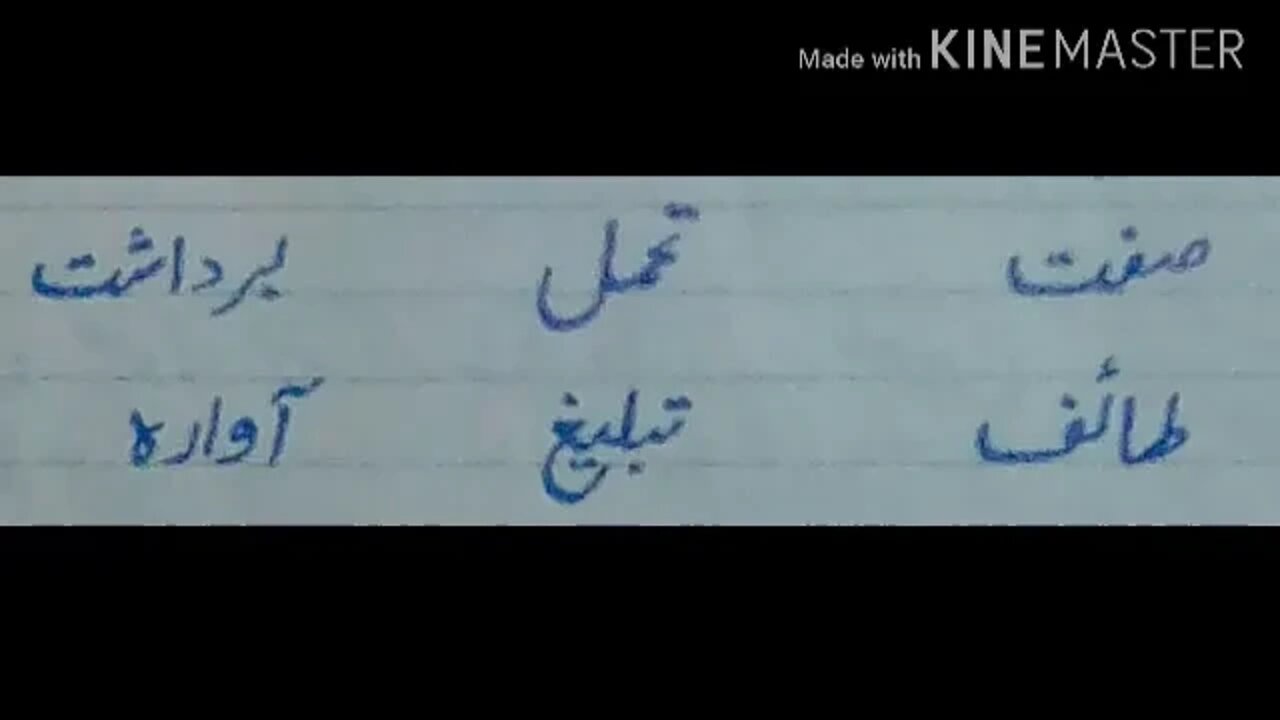 Made with KINEMASTER
صفت تحمل برداشت
طائف تبلیغ آوارہ